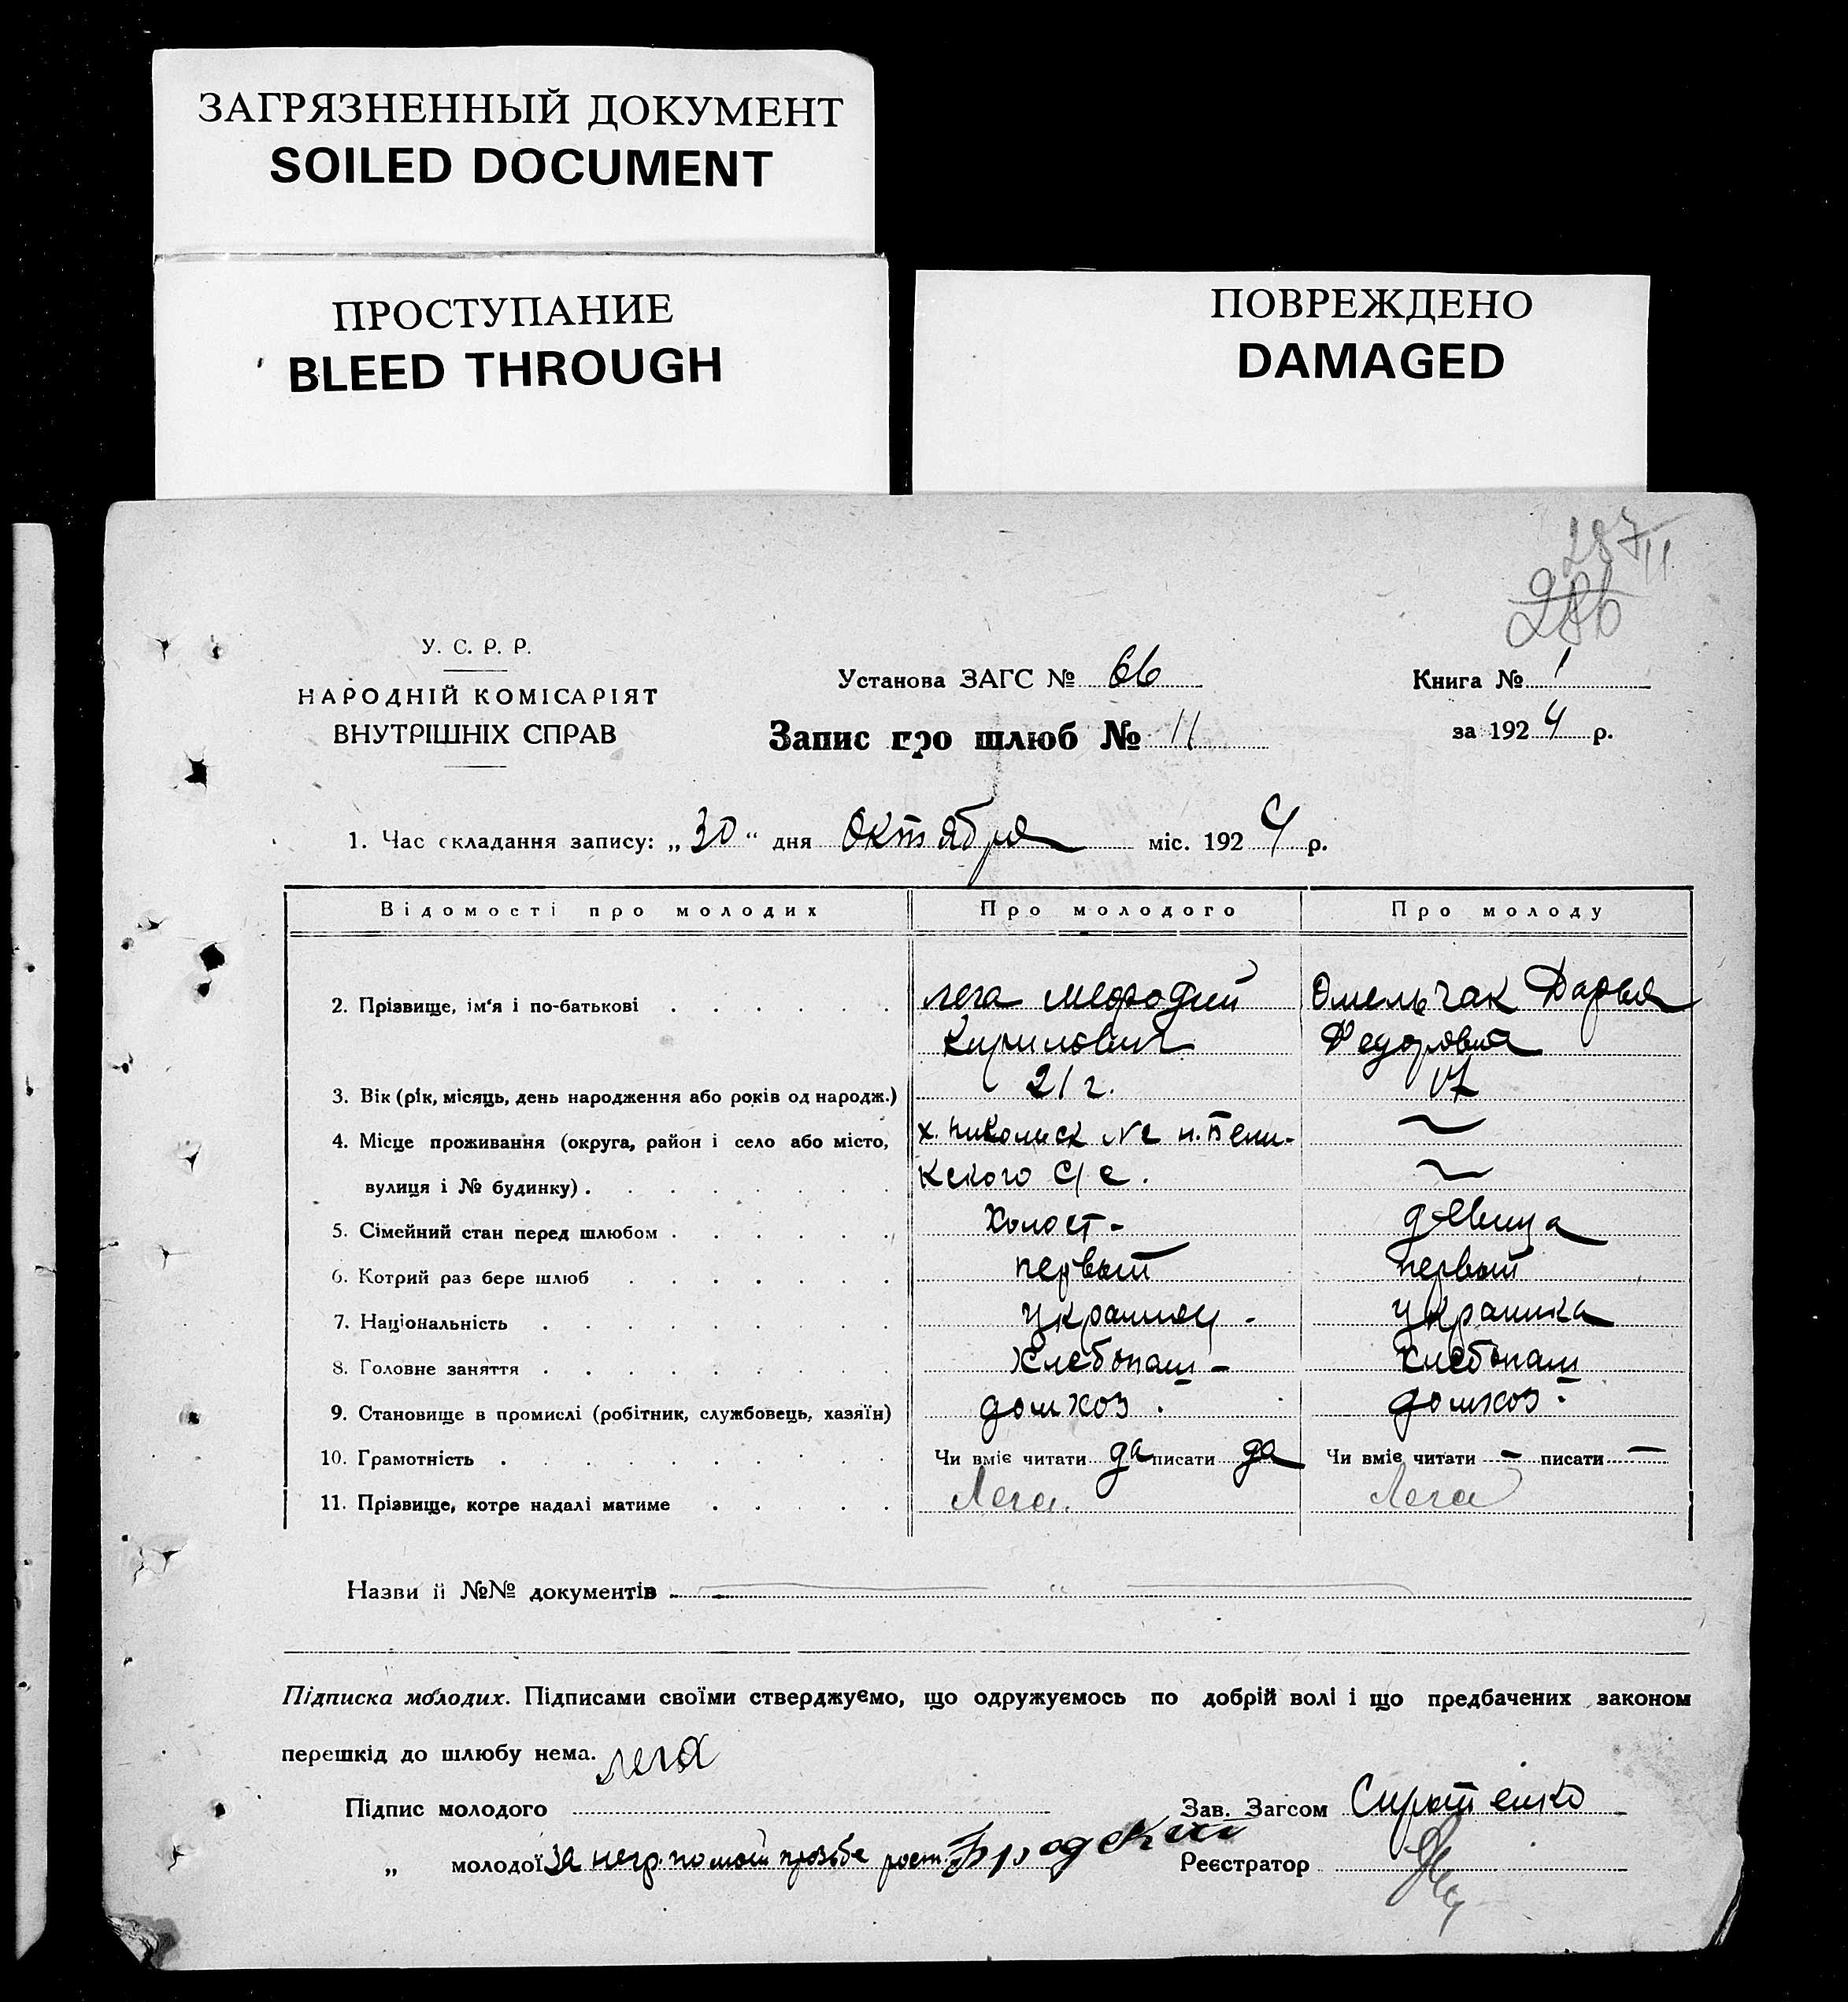 ЗАГРЯЗНЕННЫЙ ДОКУМЕНТ
SOILED DOCUMENT
ПРОСТУПАНИЕ
BLEED THROUGH
ПОВРЕЖДЕНО
DAMAGED
287
11
286
У. С. Р. Р.
НАРОДНІЙ КОМІСАРІЯТ
ВНУТРІШНІХ СПРАВ
Установа ЗАГС № 66
Запис про шлюб № 11
Книга № 1
за 1924 р.
1. Час складання запису: „30“ дня Октября міс. 1924 р.
Відомості про молодих Про молодого Про молоду
2. Прізвище, ім'я і по-батькові . . . . . . Лега Мефодий Омельчак Дарья
Кирилович Федоровна
3. Вік (рік, місяць, день народження або років од народж.) 21 г. 17
4. Місце проживання (округа, район і село або місто, х. Николск №2 н.
вулиця і № будинку) . . . . . . . . кского С/с.
5. Сімейний стан перед шлюбом . . . . . . Холост - девица
6. Котрий раз бере шлюб . . . . . . . первый первый
7. Національність . . . . . . . . . украинец - украинка
8. Головне заняття . . . . . . . . . Хлебопаш - хлебопаш
9. Становище в промислі (робітник, службовець, хазяїн) домхоз . домхоз .
10. Грамотність . . . . . . . . . Чи вміє читати да писати да Чи вміє читати - писати -
11. Прізвище, котре надалі матиме . . . . . Лега. Лега
Назви й №№ документів
Підписка молодих. Підписами своїми стверджуємо, що одружуємось по добрій волі і що предбачених законом
перешкід до шлюбу нема. Лега
Підпис молодого Зав. Загсом Сиротенко
„ молодої за негр. по моей прозьбе росп. Бродский Реєстратор